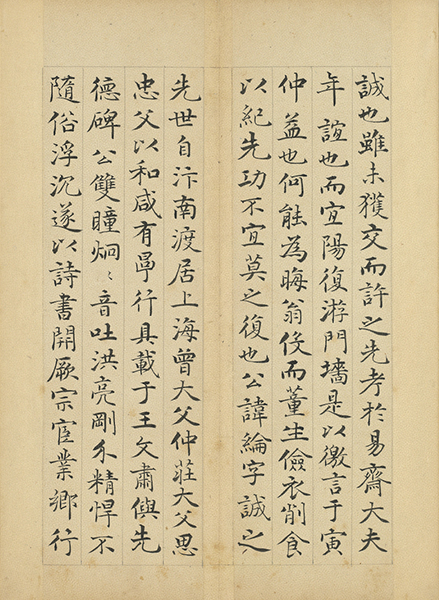 誠也雖未獲交而許之先考於易齋大夫
年誼也而宜陽復游門墻是以徼言于寅
仲益也何能為晦翁役而董生儉衣削食
以紀先功不宜莫之復也公諱綸字誠之
先世自汴南渡居上海曾大父仲莊大父思
忠父以和咸有學行具載于王文肅㒜先
德碑公雙瞳炯〻音吐洪亮剛介精悍不
隨俗浮沉遂以詩書開厥宗宦業鄉行